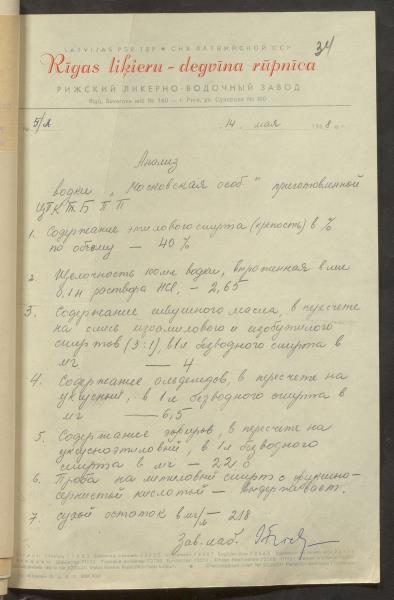 34
LATVIJAS PSR TSP ★ СНХ ЛАТВИЙСКОЙ ССР
Rīgas liķieru - degvīna rūpnīca
РИЖСКИЙ ЛИКЕРНО-ВОДОЧНЫЙ ЗАВОД
Rīgā, Suvorova ielā № 160 — г. Рига, ул. Суворова № 160
№ 5/л 14. мая 1968 г.
Анализ
водки „Московская особ" приготовленный
ЦЗ К П Б П П
1. Содержание этилового спирта (крепость) в %
по объему — 40 %
2. Щелочность 100 мл водки, выраженная в мл
0.1 н раствора HCl, — 2,65
3. Содержание сивушного масла, в пересчете
на смесь изоамилового и изобутилого
спиртов (3:1), в 1л безводного спирта в
мг — 4
4. Содержание альдегидов, в пересчете на
уксусный, в 1л безводного спирта в
мг — 6,5
5. Содержание эфиров, в пересчете на
уксусноэтиловый, в 1л безводного
спирта в мг — 22,0
6. Проба на метиловый спирт с фуксино-
сернистый кислотый — выдерживает.
7. сухой остаток в мг/л — 218
Зав. лаб.